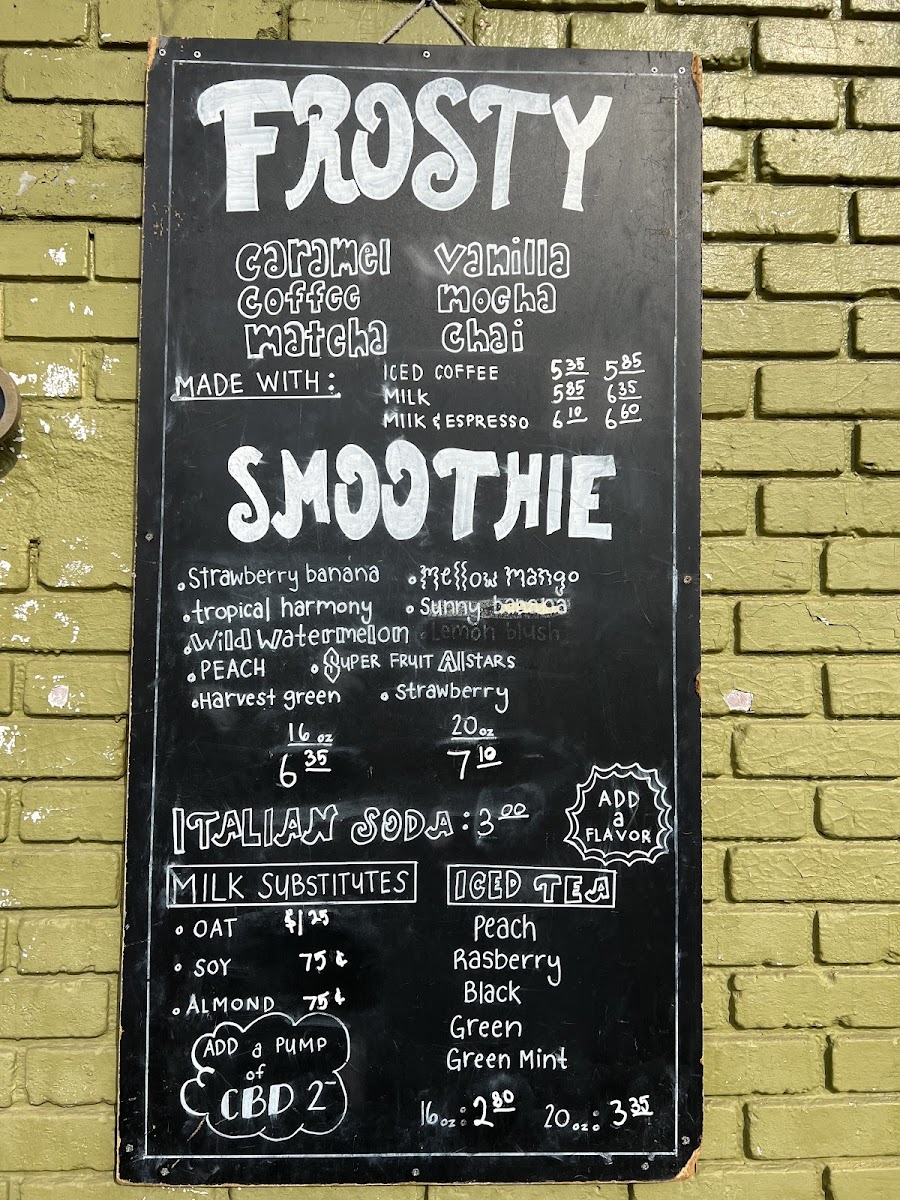 FROSTY
caramel vanilla
coffee mocha
matcha chai
MADE WITH: ICED COFFEE 5 35 5 85
MILK 5 85 6 35
MIlK & ESPRESSO 6 10 6 60
SMOOTHIE
Strawberry banana Mellow Mango
tropical harmony Sunny banana
Wild Watermelon Lemon blush
PEACH SUPER FRUIT AllSTARS
Harvest green Strawberry
16 oz 20 oz
6 35 7 10
ITALIAN SODA: 3 00
ADD
a
FLAVOR
MILK SUBSTITUTES
OAT $1 25
SOY 75 ¢
ALMOND 75 ¢
ADD a PUMP
of
CBD 2-
ICED TEA
Peach
Rasberry
Black
Green
Green Mint
16 oz: 2 80 20 oz: 3 35